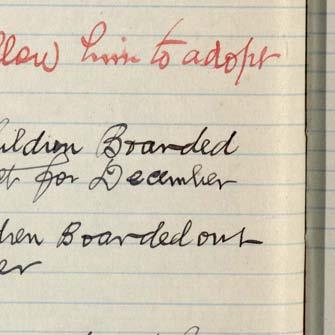 llow him to adopt
hildren Boarded
et for December
dren Boarded out
er